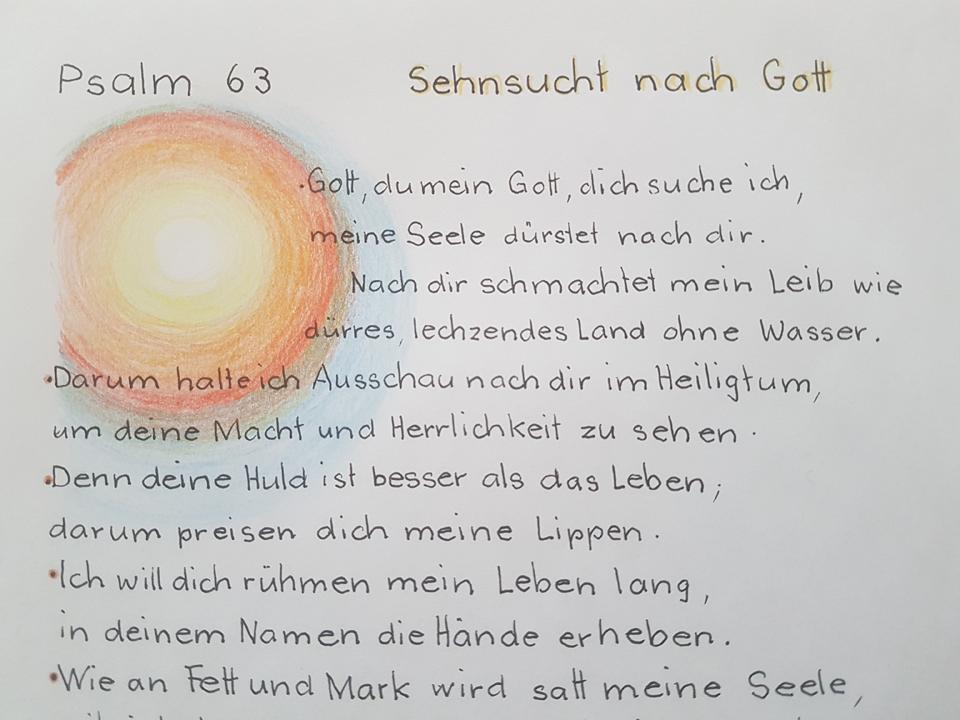 Psalm 63 Sehnsucht nach Gott
·Gott, du mein Gott, dich suche ich,
meine Seele dürstet nach dir.
Nach dir schmachtet mein Leib wie
dürres, lechzendes Land ohne Wasser.
·Darum halte ich Ausschau nach dir im Heiligtum,
um deine Macht und Herrlichkeit zu sehen.
·Denn deine Huld ist besser als das Leben;
darum preisen dich meine Lippen.
·Ich will dich rühmen mein Leben lang,
in deinem Namen die Hände erheben.
·Wie an Fett und Mark wird satt meine Seele,